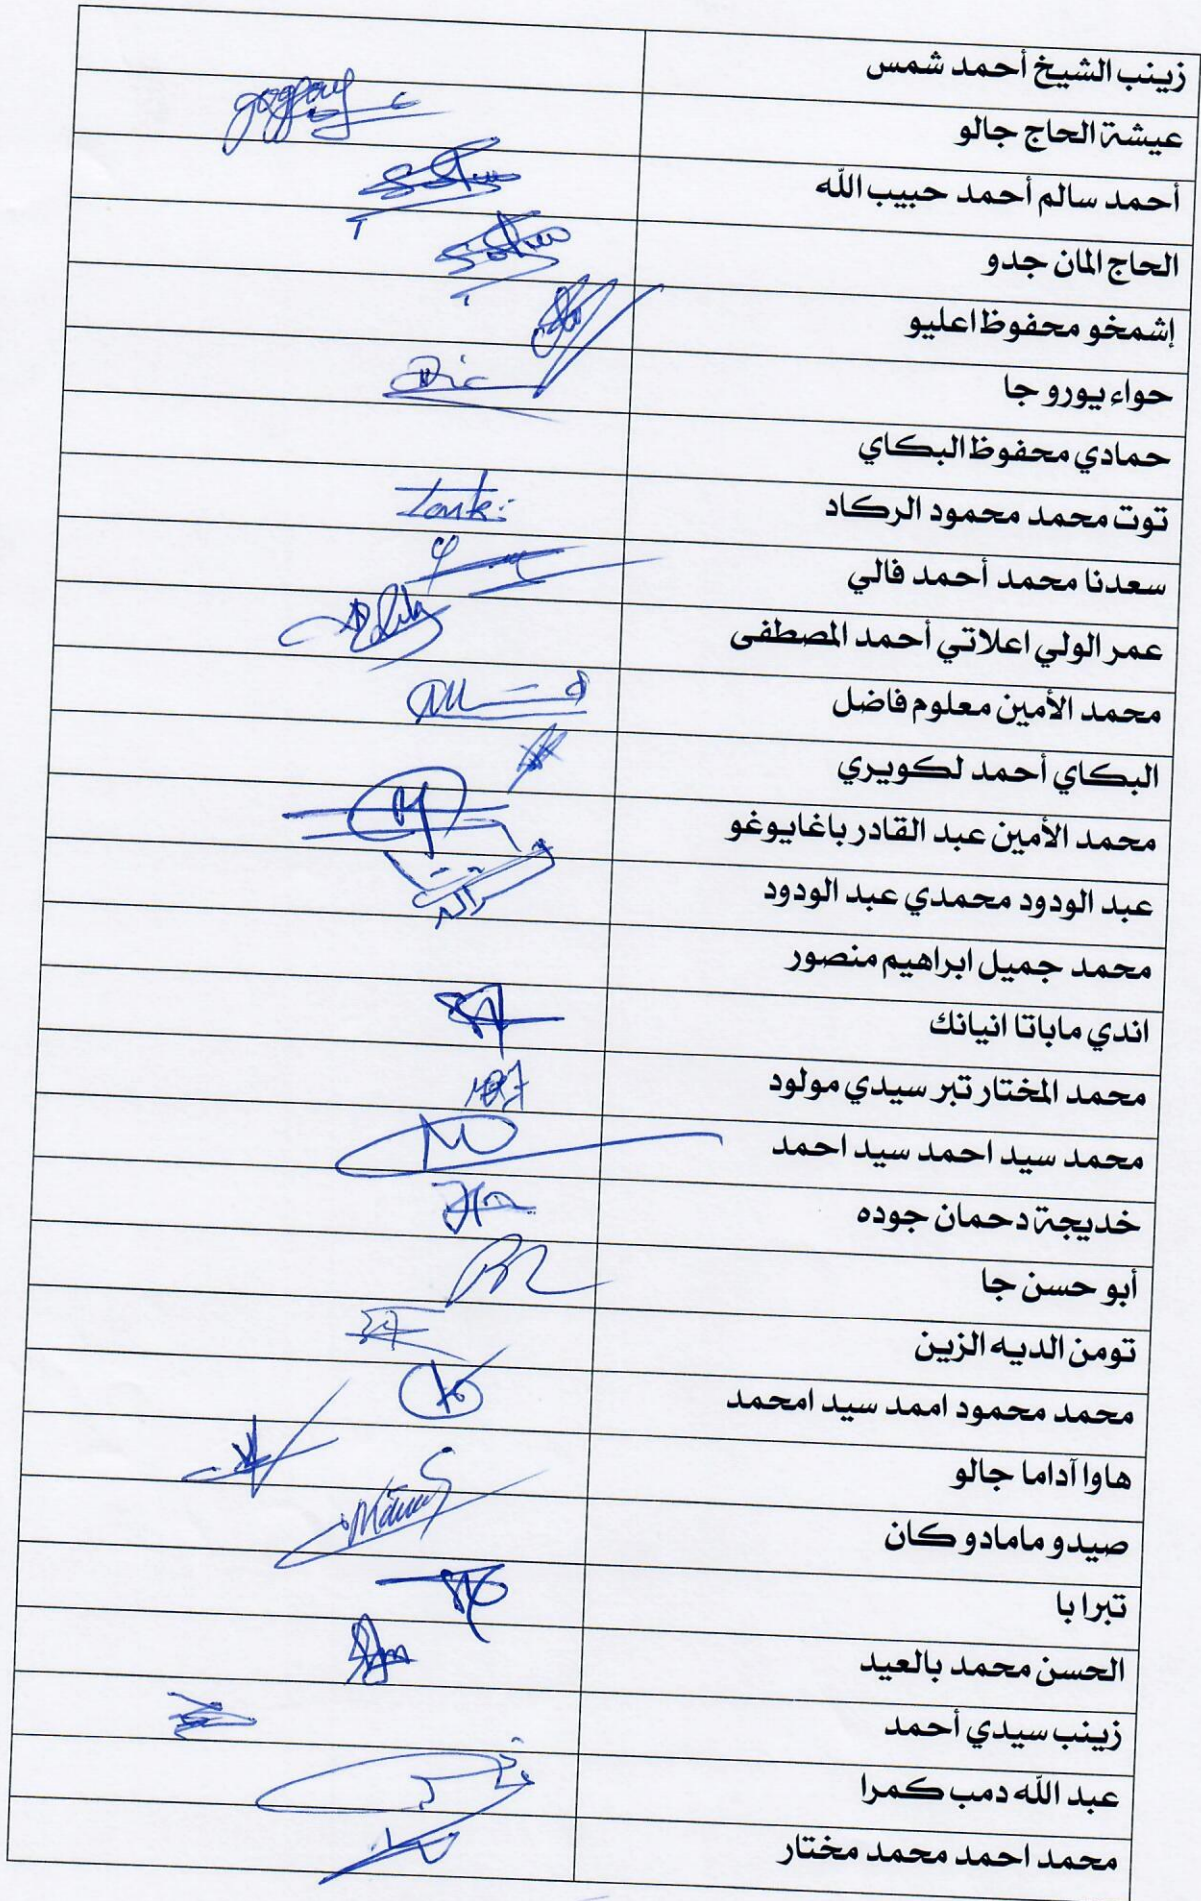 زينب الشيخ أحمد شمس
عيشة الحاج جالو
أحمد سالم أحمد حبيب الله
الحاج المان جدو
إشمخو محفوظ اعليو
حواء يورو جا
حمادي محفوظ البكاي
توت محمد محمود الركاد
سعدنا محمد أحمد فالي
عمر الولي اعلاتي أحمد المصطفى
محمد الأمين معلوم فاضل
البكاي أحمد لكويري
محمد الأمين عبد القادر باغايوغو
عبد الودود محمدي عبد الودود
محمد جميل ابراهيم منصور
اندي ماباتا انيانك
محمد المختار تبر سيدي مولود
محمد سيد احمد سيد احمد
خديجة دحمان جوده
أبو حسن جا
تومن الديه الزين
محمد محمود اممد سيد امحمد
هاوا آداما جالو
صيدو مامادو كان
تبرا با
الحسن محمد بالعيد
زينب سيدي أحمد
عبد الله دمب كمرا
محمد احمد محمد مختار